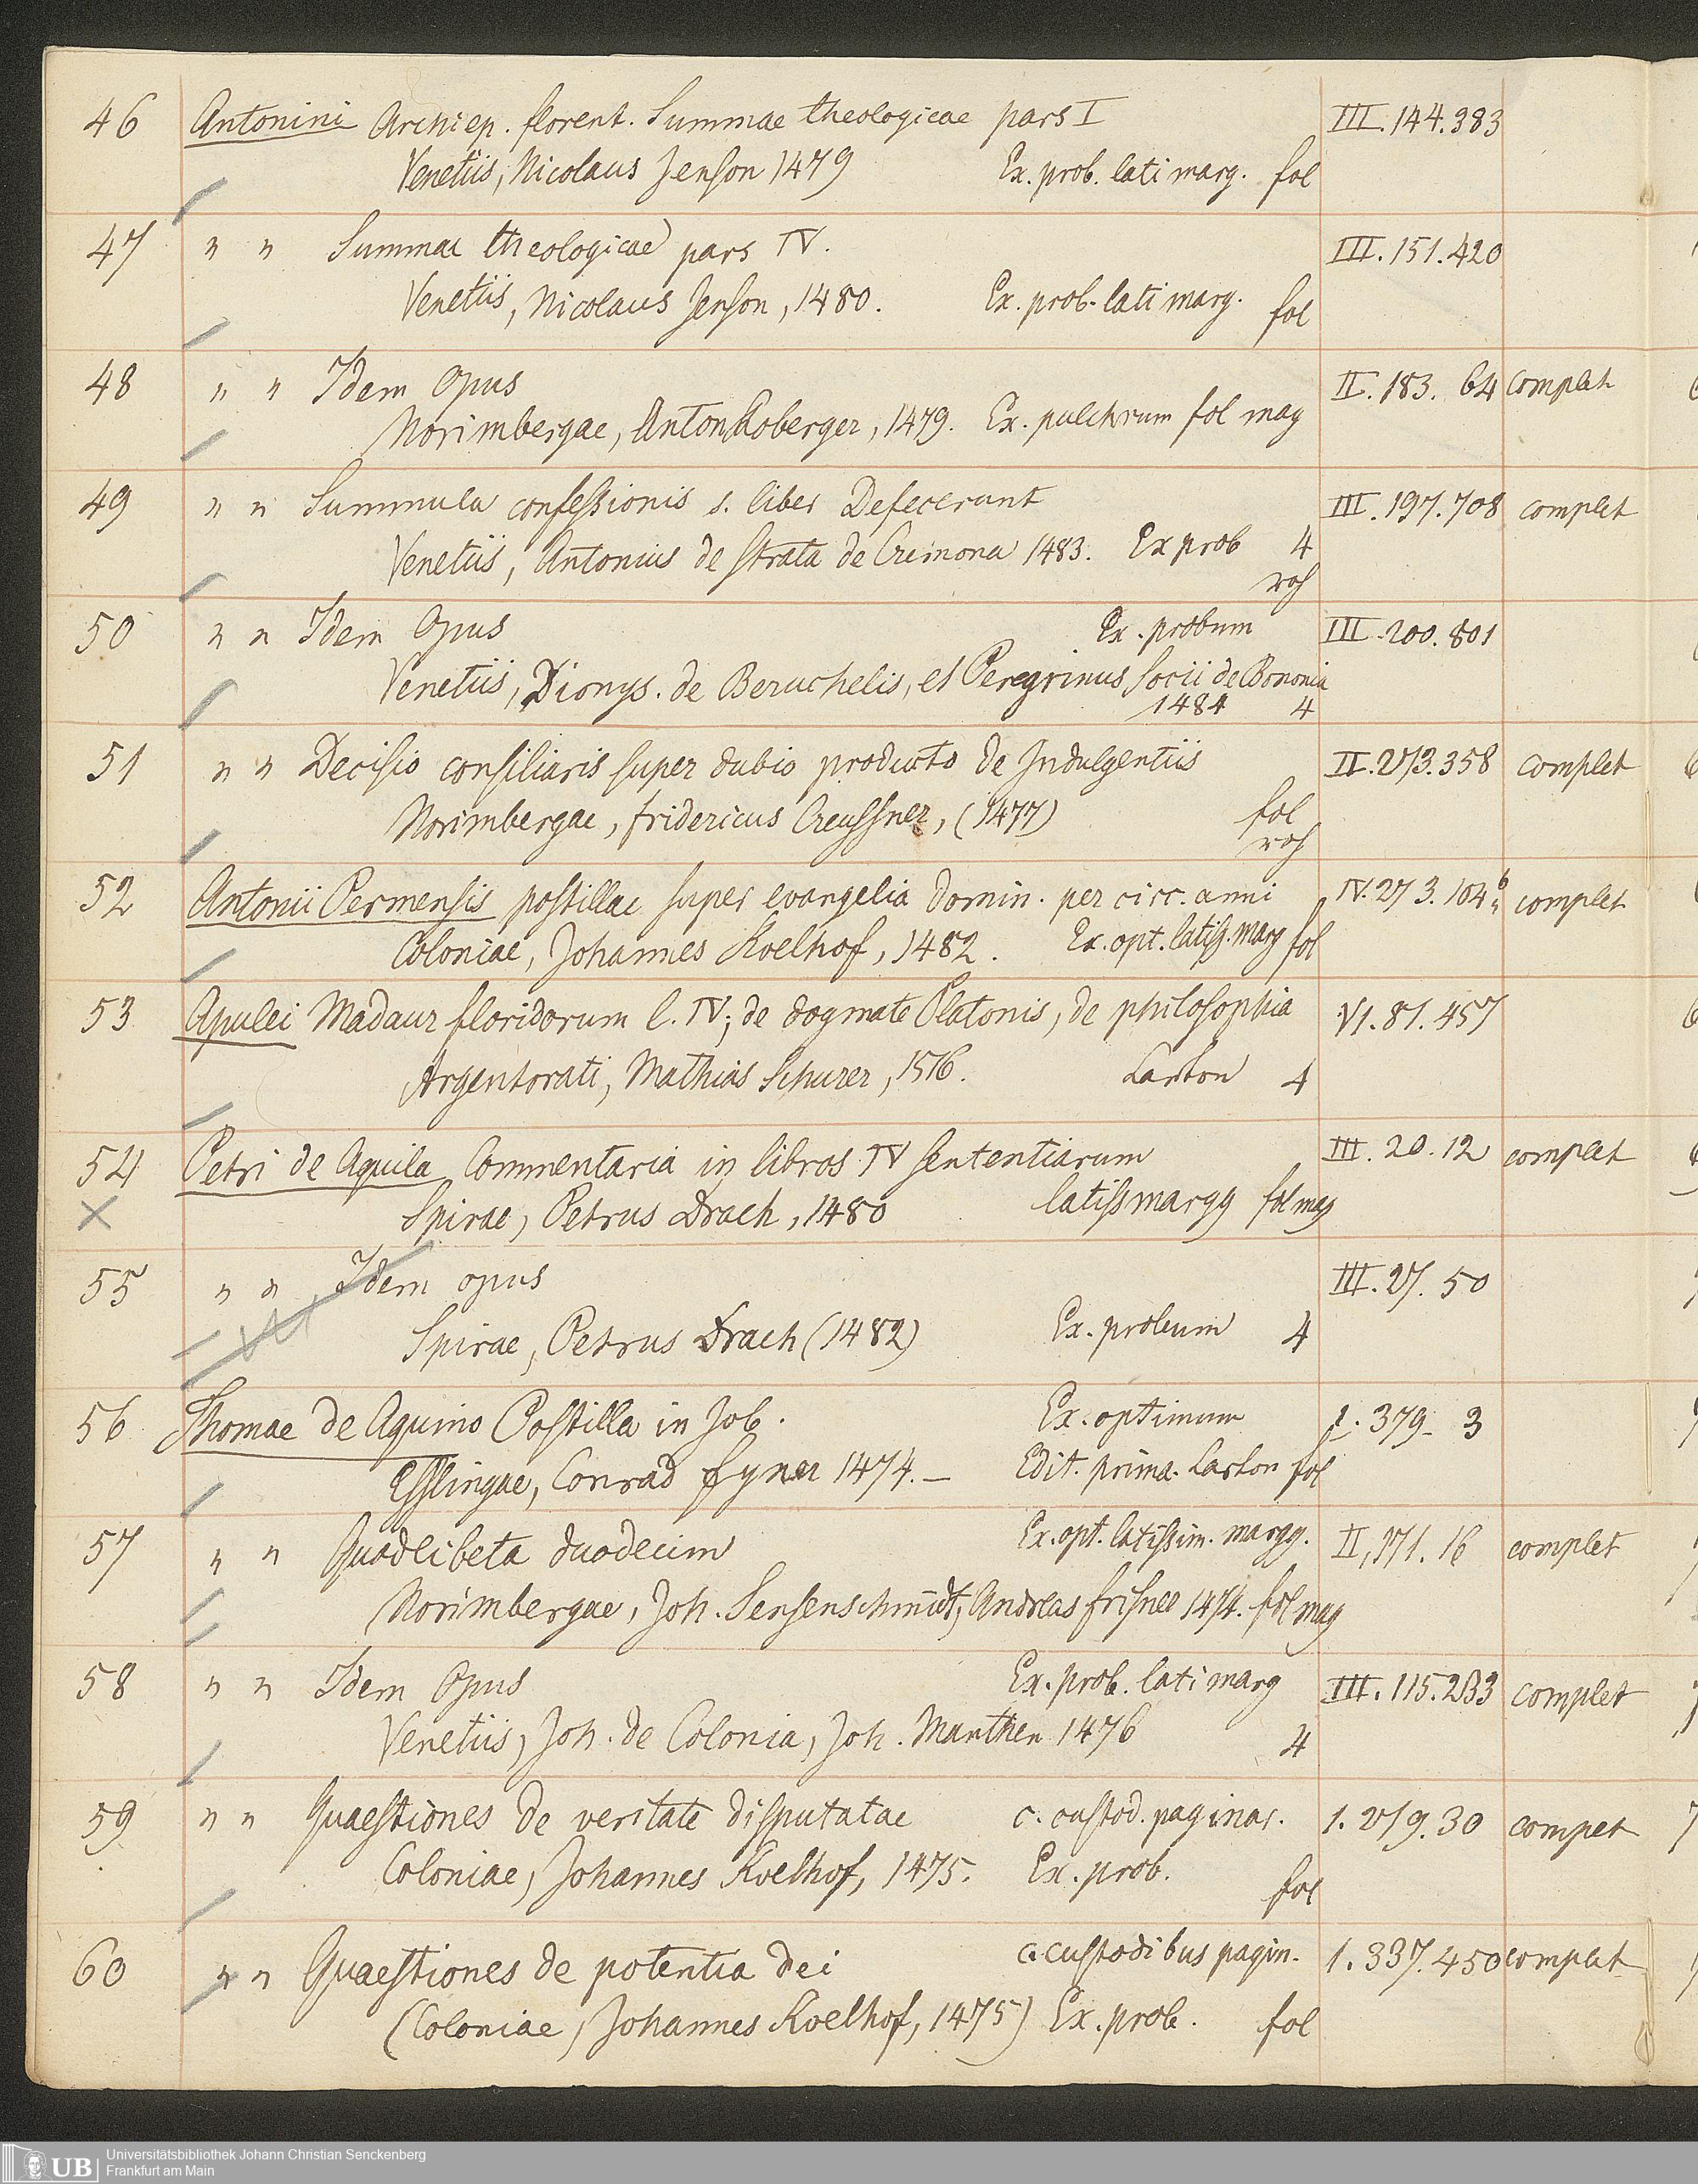 46 Antonini Archiep. florent. Summae theologicae pars I III. 144. 383
Venetiis, Nicolaus Jenson 1479 Ex. prob. lati marg. fol
47 " " Summae theologicae pars IV. III. 151. 420
Venetiis, Nicolaus Jenson, 1480. Ex. prob. lati marg. fol
48 " " Idem Opus II. 183. 64 complet
Norimbergae, Anton Koberger, 1479. Ex. pulchrum fol mag
49 " " Summula confessionis s. liber Defecerunt III. 197. 708 complet
Venetiis, Antonius de Strata de Cremona 1483. Ex prob 4
roh
50 " " Idem Opus Ex. probum III. 200. 801
Venetiis, Dionys. de Beruchelis, et Peregrinus Socii de Bononia
1484 4
51 " " Decisio consiliaris super dubio producto de Indulgentiis II. 273. 358 complet
Norimbergae, Fridericus Creussner, (1477) fol
roh
52 Antonii Parmensis postillae super evangelia domin. per circ. anni IV. 273. 104 b complet
Coloniae, Johannes Koelhof, 1482. Ex. opt. latiss. marg fol
53 Apulei Madaur floridorum l. IV; de dogmate Platonis, de philosophia VI. 81. 457
Argentorati, Mathias Schurer, 1516. Carton 4
54 Petri de Aquila Commentaria in libros IV Sententiarum III. 20. 12 complet
Spirae, Petrus Drach, 1480 latiss margg fol mag
55 " " Idem opus III. 27. 50
Spirae, Petrus Drach (1482) Ex. probum 4
56 Thomae de Aquino Postilla in Job. Ex. optimum 1. 379. 3
Esslingae, Conrad Fyner 1474. — Edit. prima. Carton fol
57 " " Quodlibeta duodecim Ex. opt. latissim. margg. II, 171. 16 complet
Norimbergae, Joh. Sensenschmidt, Andreas Frisner 1474. fol mag
58 " " Idem Opus Ex. prob. lati marg III. 115. 233 complet
Venetiis, Joh. de Colonia, Joh. Manthen 1476 4
59 " " Quaestiones de veritate disputatae c. custod. paginar. 1. 219. 30 compet
Coloniae, Johannes Koelhof, 1475. Ex. prob. fol
60 " " Quaestiones de potentia dei c. custodibus pagin. 1. 337. 450 complet
(Coloniae, Johannes Koelhof, 1475) Ex. prob. fol
UB Universitätsbibliothek Johann Christian Senckenberg
Frankfurt am Main